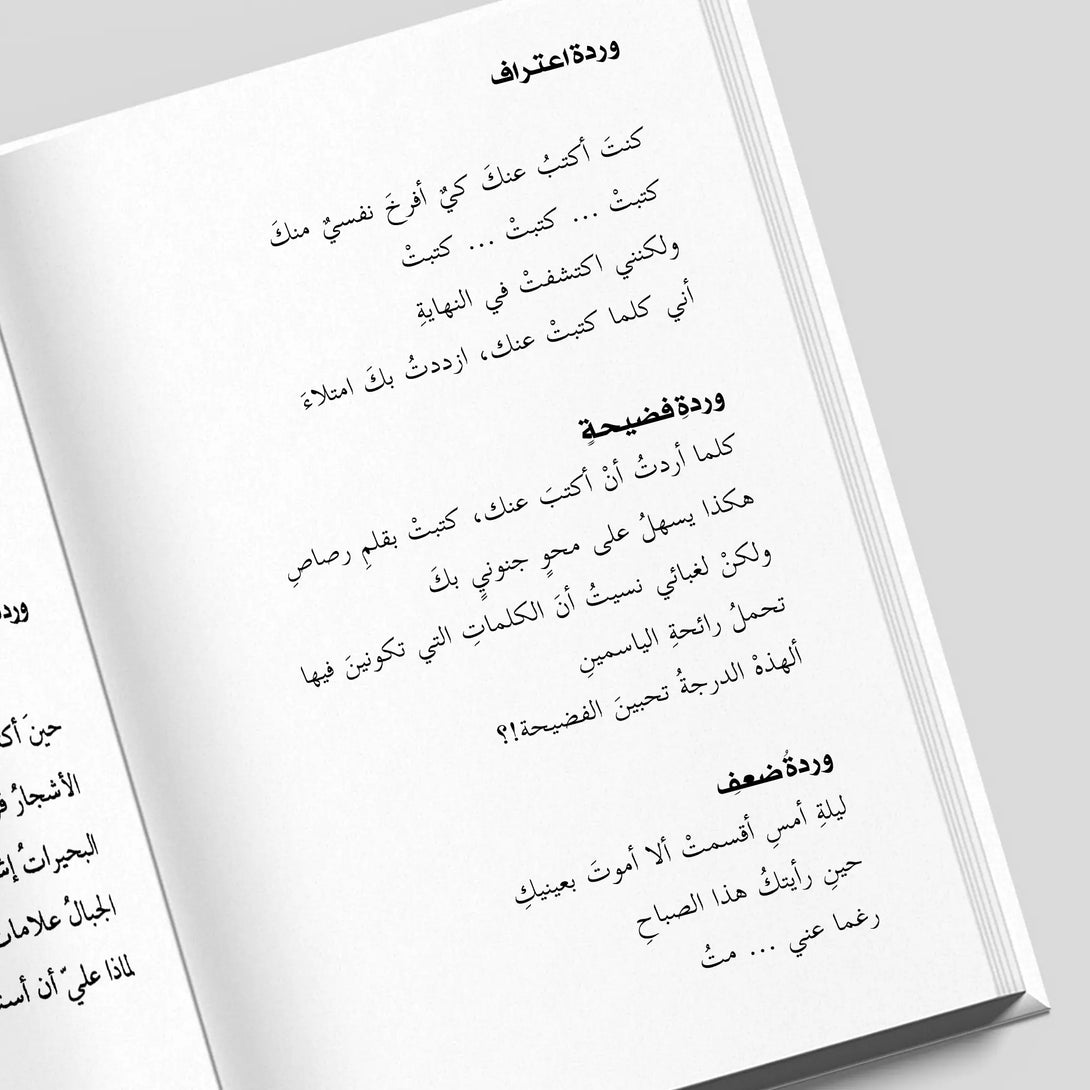 وردة اعتراف
كنتَ أكتبُ عنكَ كيٌ أفرخَ نفسيٌ منكَ
كتبتْ ... كتبتْ ... كتبتْ
ولكنني اكتشفتْ في النهايةِ
أني كلما كتبتْ عنك، ازددتُ بكَ امتلاءَ
وردةِ فضيحةٍ
كلما أردتُ أنْ أكتبَ عنك، كتبتْ بقلمِ رصاصِ
هكذا يسهلُ على محوٍ جنونيٍ بكَ
ولكنْ لغبائي نسيتُ أنَ الكلماتِ التي تكونينَ فيها
تحملُ رائحةِ الياسمينِ
ألهذهْ الدرجةُ تحبينَ الفضيحة!؟
وردةُ ضعفِ
ليلةِ أمسِ أقسمتْ ألا أموتَ بعينيكِ
حينِ رأيتكُ هذا الصباحِ
رغما عني ... متُ
حينَ
الأشجارُ
البحيراتُ
الجبالُ
لماذا عليّ أن